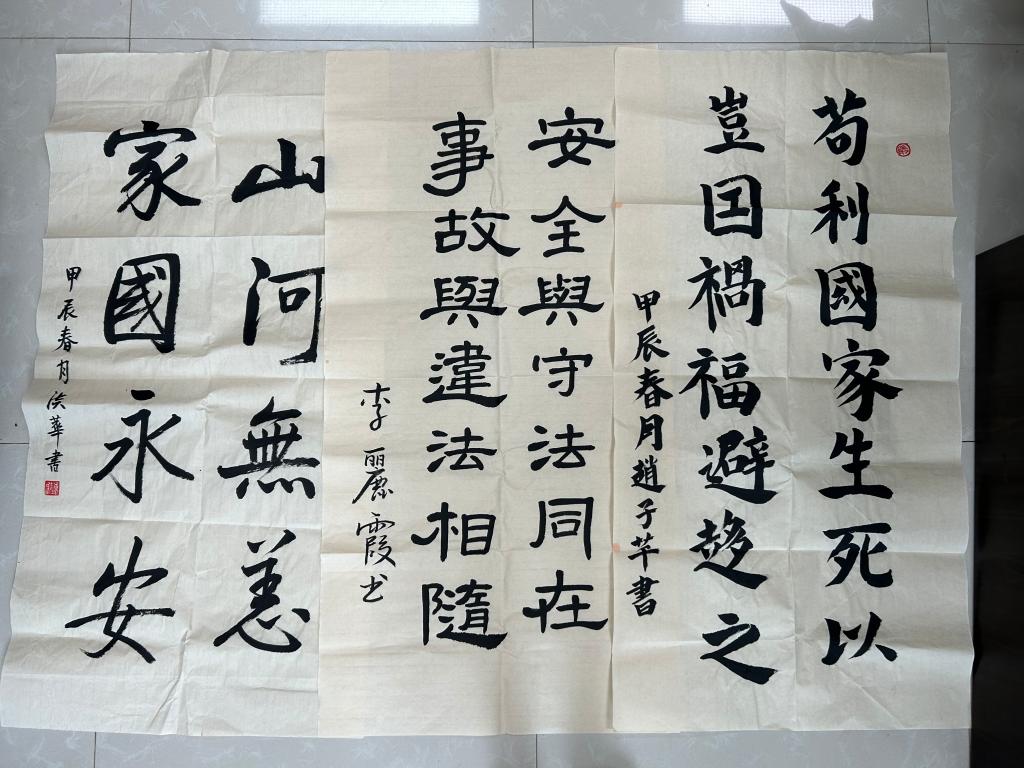 苟利國家生死以
豈囙禍福避趍之
甲辰春月趙子芊書
安全與守法同在
事故與違法相隨
李麗霞书
山河無恙
家國永安
甲辰春月華書